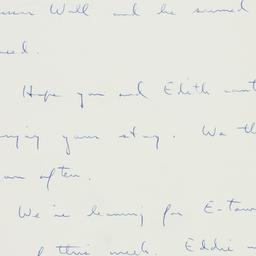 Will and he seemed
Hope you and Edith
your stay. We
often.
We're leaving for E-town
of this week. Eddie